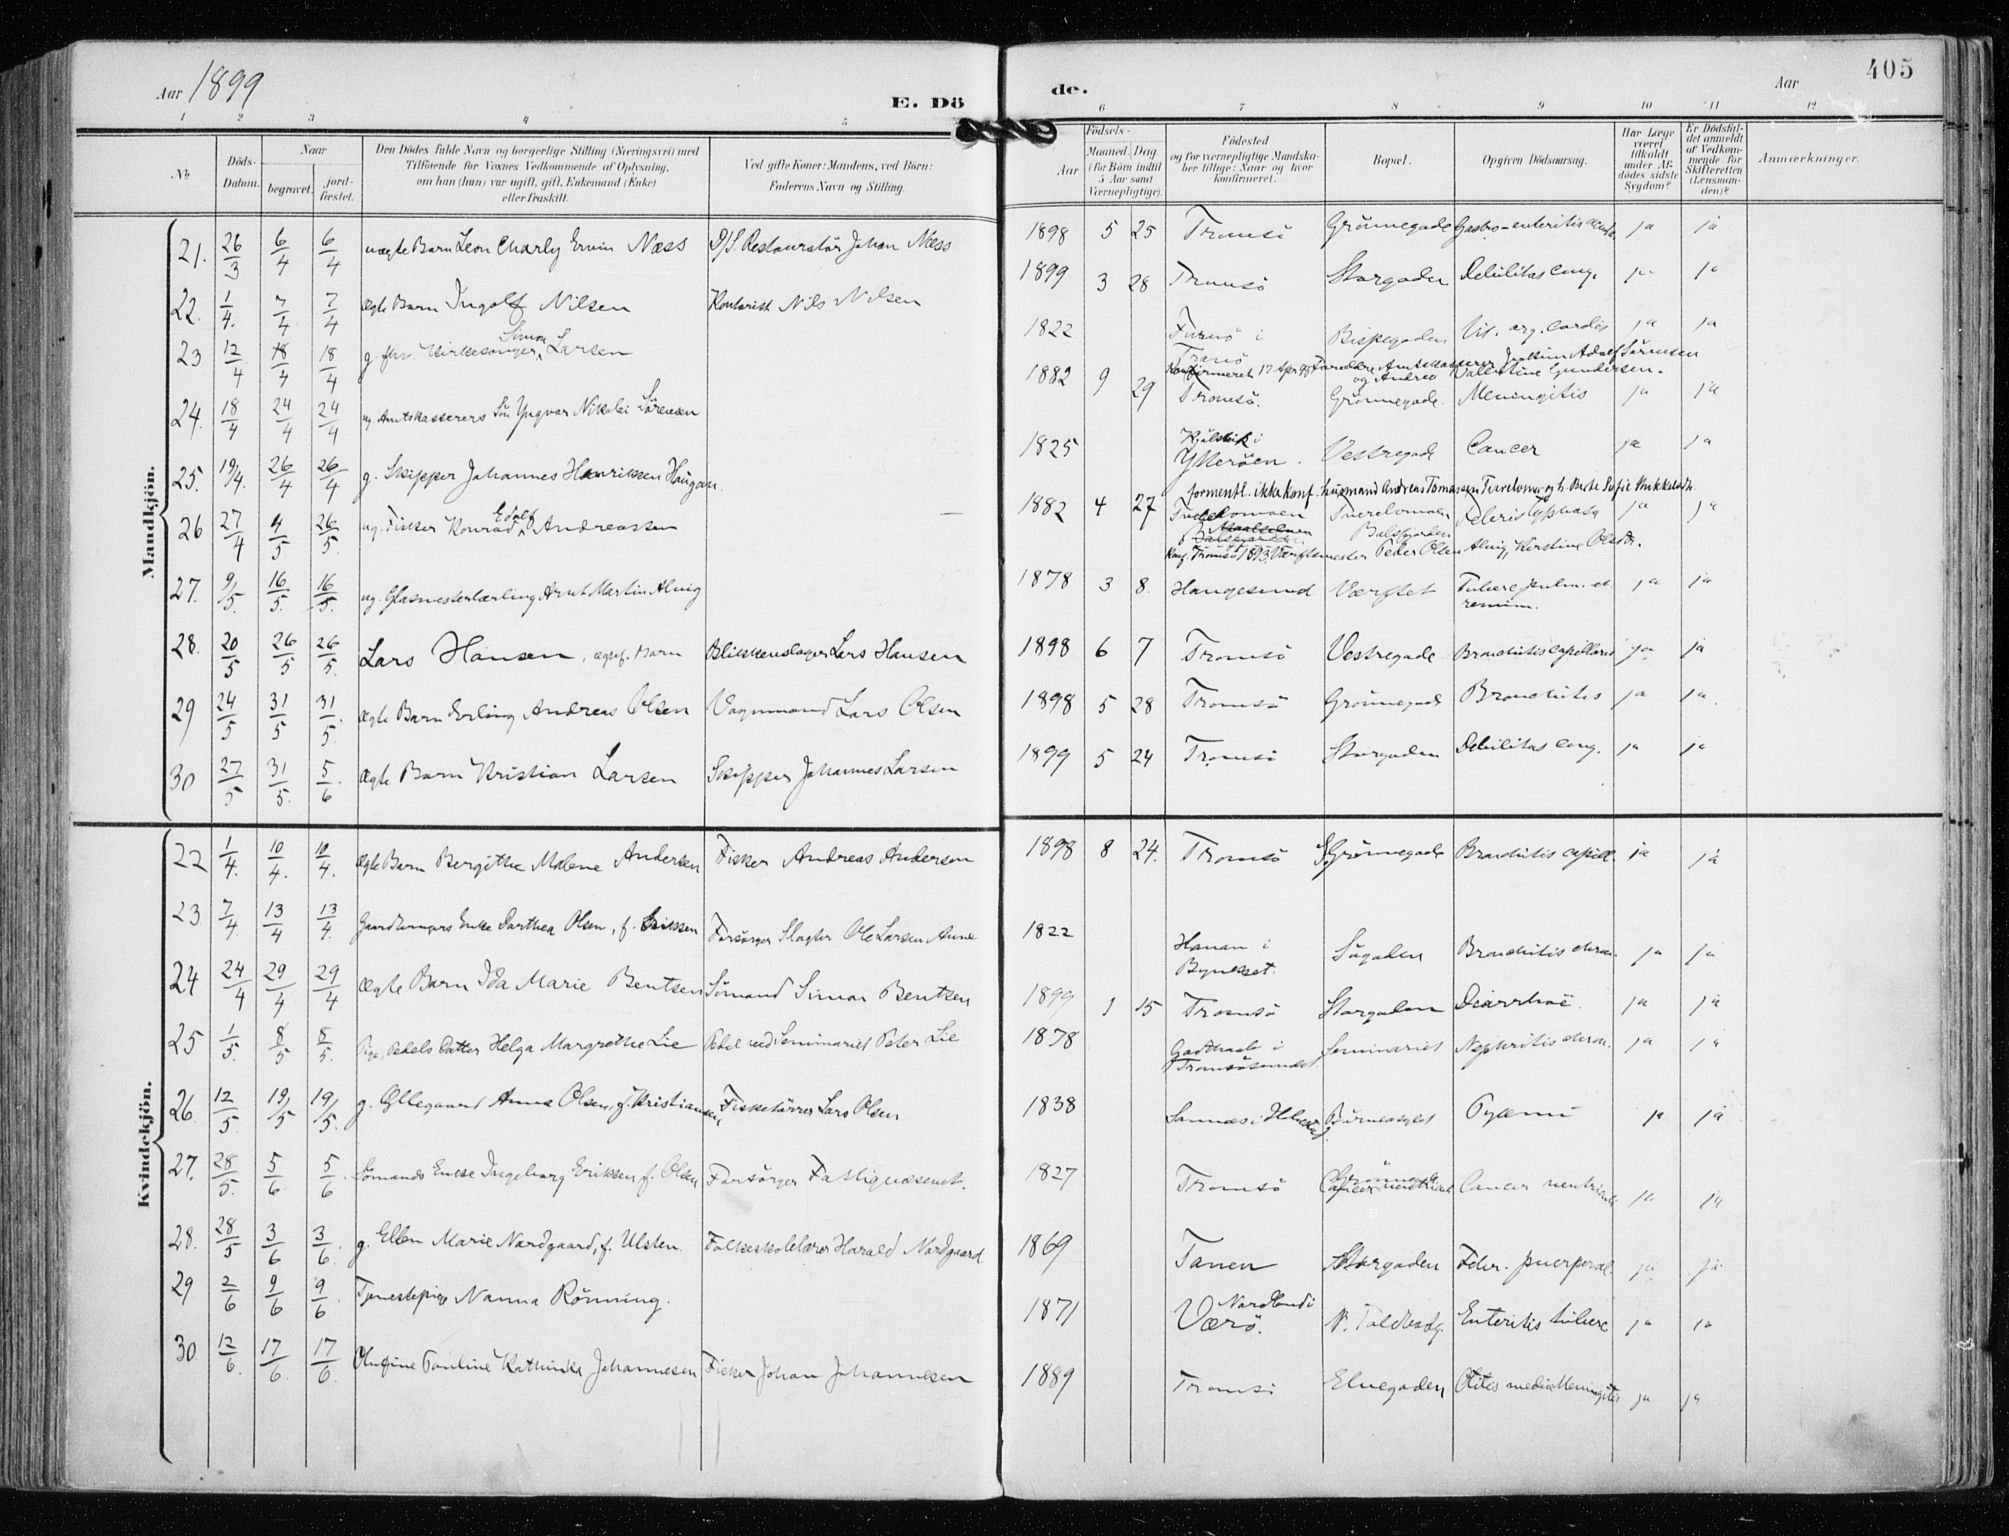 Aar 1899
E. Dö
de.
Aar
405
1 2 3 4 5 6 7 8 9 10 11 12
No
Döds-Datum.
Naar
begravet.
jord-fæstet.
Den Dödes fulde Navn og borgerlige Stilling (Næringsvei) med
Tilföiende for Voxnes Vedkommende af Oplysning,
om han (hun) var ugift, gift, Enkemand (Enke)
eller fraskilt.
Ved gifte Koner: Mandens, ved Börn:
Faderens Navn og Stilling.
Födsels-
Aar
Maaned. Dag
(for Börn indtil
5 Aar samt
Værnepligtige).
Födested
og for værnepligtige Mandska-
ber tillige: Naar og hvor
konfirmeret.
Bopæl.
Opgiven Dödsaarsag.
Har Læge
været
tilkaldt
under Af-
dödes sidste
Sygdom?
Er Dödsfal-
det anmeldt
af Vedkom-
mende for
Skifteretten
(Lensman-
den)?
Anmærkninger.
Mandkjön.
21. 26/3 6/4 6/4 uægte Barn Leon Charly Ervin Næss D/S. Restauratör Johan Næss 1898 5 25 Tromsö Grönnegade Gastro-enteritis acut. ja ja
22. 1/4. 7/4 7/4 ægte Barn Ingolf Nilsen Kontorist Nils Nilsen 1899 3 28 Tromsö Storgaden Debilitas cong. ja ja
23 12/4 18/4 18/4 g. fhv Kirkesanger Simon Larsen 1822 i Tranö Bispegaden Vit. org. cordis ja ja
Konfirmeret 17 Apr 98 Forældre Amtskasserer Joakim Adolf Sörensen
og Andrea Vallentine Gundersen.
24. 18/4 24/4 24/4 ug. Amtskasserers Sön Yngvar Nikolai Sörensen 1882 9 29 Tromsö. Grönnegade. Meningitis ja ja
25. 19/4. 26/4 26/4 g. Skipper Johannes Henriksen Haugan. 1825 i Ytteröen. Vestregade Cancer ja ja
formentl. ikke Konf. husmand Andreas Tomassen
26 27/4 4/5 26/5. ug. Fisker Konrad Edolf Andreassen 1882 4 27 Balsfjorden Febris typhosa ja ja
Konf. Tromsö 1893, Værftsmester Peder Olsen Alvig, Kerstine Olsdtr.
27. 9/5. 16/5. 16/5. ug. Glasmesterlærling Arnt Martin Alvig 1878 3 8. Haugesund Værftet Tuberc. pulm. et renum. ja ja
28. 20/5 26/5 26/5. Lars Hansen, ægtef. Barn Blikkenslager Lars Hansen 1898 6 7 Tromsö Vestregade Bronchitis capillaris ja ja
29 24/5 31/5 31/5. ægte Barn Erling Andreas Olsen Vognmand Lars Olsen 1898 5 28 Tromsö Grönnegade Bronchitis ja ja.
30 27/5 31/5. 5/6. ægte Barn Kristian Larsen Skipper Johannes Larsen 1899 5 24 Tromsö Storgaden Debilitas cong. ja ja
Kvindekjön.
22 1/4. 10/4. 10/4. ægte Barn Bergithe Malene Andersen Fisker Andreas Andersen 1898 8 24. Tromsö Grönnegade Bronchitis capill. ja ja
23. 7/4 13/4 13/4. Gaardbrugers Enke Dorthea Olsen, f. Eriksen Forsörger Slagter Ole Larsen Aune 1822 Hanan i Byneset. Sögaden Bronchitis chron. ja ja
24 24/4 29/4 29/4 ægte Barn Ida Marie Bentsen Sömand Simon Bentsen 1899 1 15 Tromsö Storgaden Diarrhoë ja ja
25 1/5. 8/5 8/5. Pige, Pedels Datter Helga Margrethe Lie Pedel ved Seminariet Peter Lie 1878 i Tromsösundet Seminariet Nephritis chron. ja ja
26. 12/5. 19/5 19/5. g. Anna Olsen, f. Kristiansen, Fisketörrer Lars Olsen 1838 Pyæmi ja ja
27. 28/5. 5/6 5/6 Sömands Enke Ingeborg Eriksen f. Olsen Forsörger Fattigvæsenet. 1827 Tromsö Grönnegade Cancer ventriculi ja ja
28. 28/5 3/6 3/6. g. Ellen Marie Nordgaard, f. Ulsten. Folkeskolelærer Harald Nordgaard 1869 Tanen Storgaden Febr. puerperal. ja ja
29 2/6 9/6 9/6. Tjenestepige Nanna Rönning. 1871 Værö. Nordland i N. Toldbodg. Enteritis tuberc ja ja
30. 12/6. 17/6. 17/6. Olufine Pauline Kathinka Johannesen Fisker Johan Johannesen 1889 Tromsö Elvegaden Otitis media Meningitis ja ja